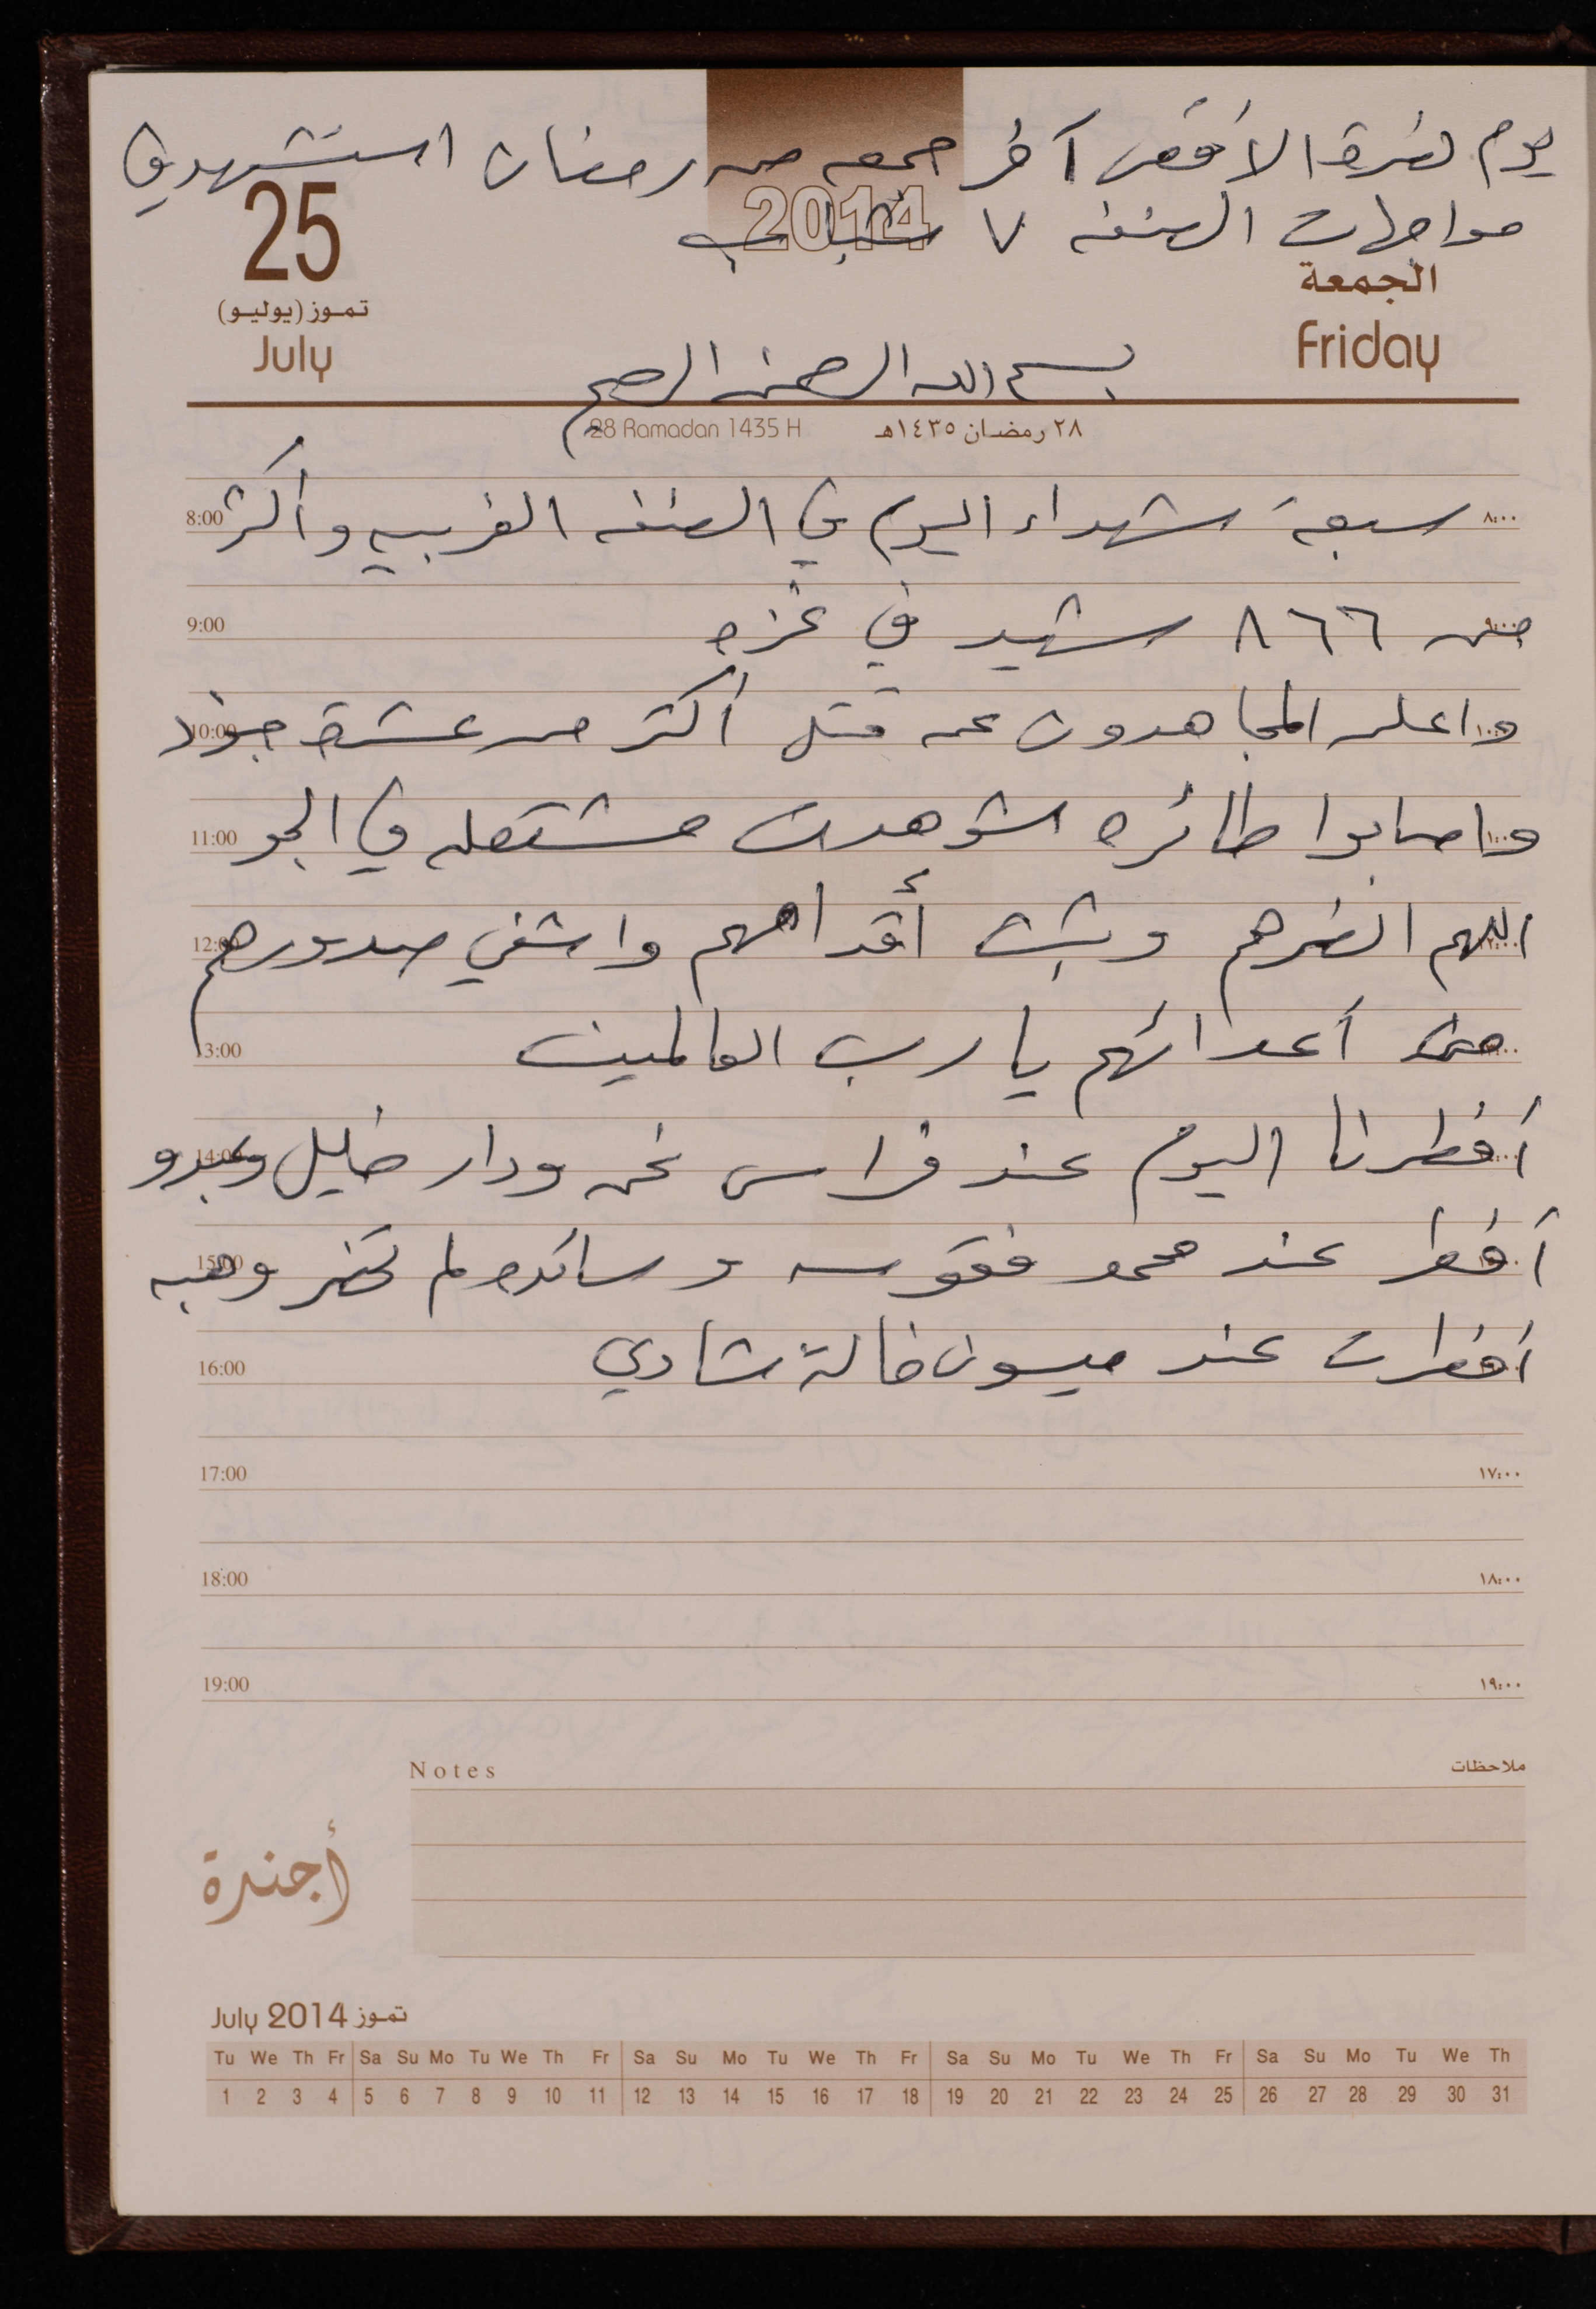 يوم نصرة الاقصى آخر جمعه من رمضان استشهد في
مواجهات الضفه ٧ شباب
2014
25
تموز (يوليو)
July
الجمعة
Friday
بسم الله الرحمن الرحيم
28 Ramadan 1435 H ٢٨ رمضان ١٤٣٥هـ
8:00 سبعة شهداء اليوم في الضفه الغربيه وأكثر ٨:٠٠
9:00 من ٨٦٦ شهيد في غزه ٩:٠٠
10:00 واعلن المجاهدون عن قتل أكثر من عشرة جنود ١٠:٠٠
11:00 واصابوا طائره شوهدت مشتعله في الجو ١١:٠٠
12:00 اللهم انصرهم وثبت أقدامهم واشفي صدورهم ١٢:٠٠
13:00 من أعدائهم يا رب العالمين ١٣:٠٠
14:00 أفطرنا اليوم عند فراس نحن ودار خليل وعبدو ١٤:٠٠
15:00 أفطر عند محمد فقوسه وسائده لم تحضر وهبه ١٥:٠٠
16:00 افطرت عند ميسون خالة شادي ١٦:٠٠
17:00 ١٧:٠٠
18:00 ١٨:٠٠
19:00 ١٩:٠٠
Notes ملاحظات
أجندة
July 2014 تموز
Tu We Th Fr Sa Su Mo Tu We Th Fr Sa Su Mo Tu We Th Fr Sa Su Mo Tu We Th Fr Sa Su Mo Tu We Th
1 2 3 4 5 6 7 8 9 10 11 12 13 14 15 16 17 18 19 20 21 22 23 24 25 26 27 28 29 30 31